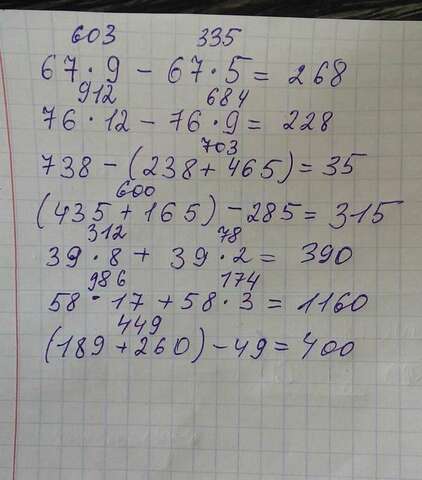 603 335
67·9 - 67·5 = 268
912 684
76·12 - 76·9 = 228
703
738 - (238 + 465) = 35
600
(435 + 165) - 285 = 315
312 78
39·8 + 39·2 = 390
986 174
58·17 + 58·3 = 1160
449
(189 + 260) - 49 = 400